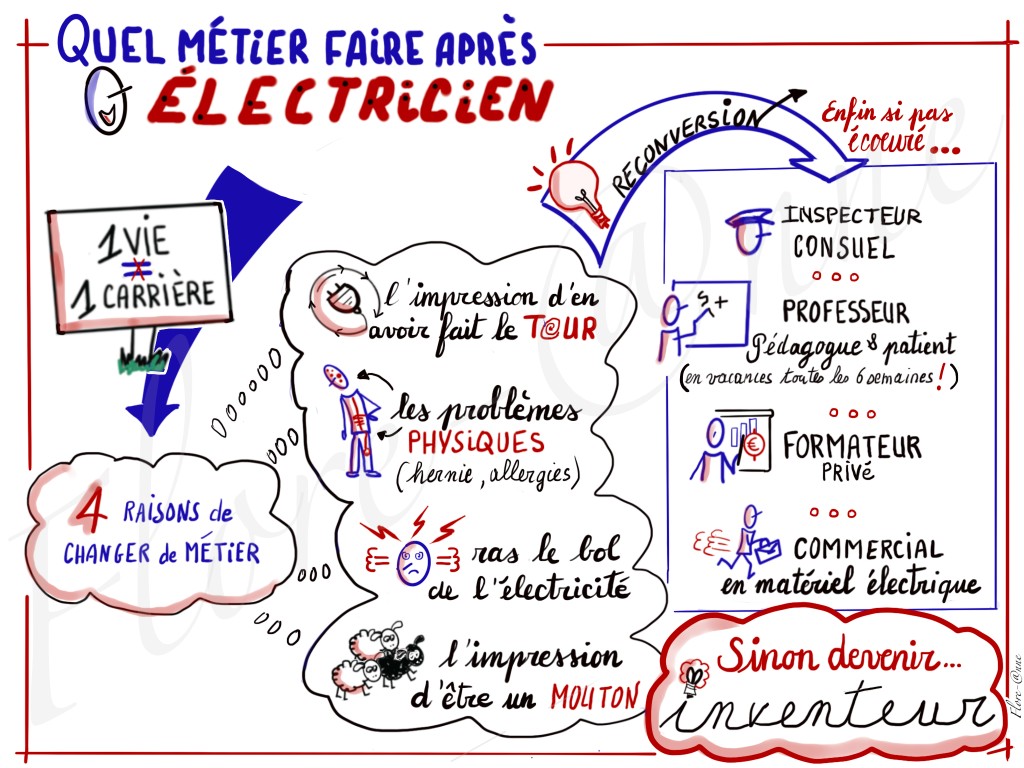 QUEL MÉTIER FAIRE APRÈS
ÉLECTRICIEN
1 VIE
≠
1 CARRIÈRE
4 RAISONS de
CHANGER de MÉTIER
l'impression d'en
avoir fait le T@UR
les problèmes
PHYSIQUES
(hernie, allergies)
ras le bol
de l'électricité
l'impression
d'être un MOUTON
RECONVERSION
Enfin si pas
écoeuré...
INSPECTEUR
CONSUEL
PROFESSEUR
Pédagogue & patient
(en vacances toutes les 6 semaines !)
FORMATEUR
PRIVÉ
COMMERCIAL
en matériel électrique
Sinon devenir...
inventeur
Flore-@nne
Flore-@nne